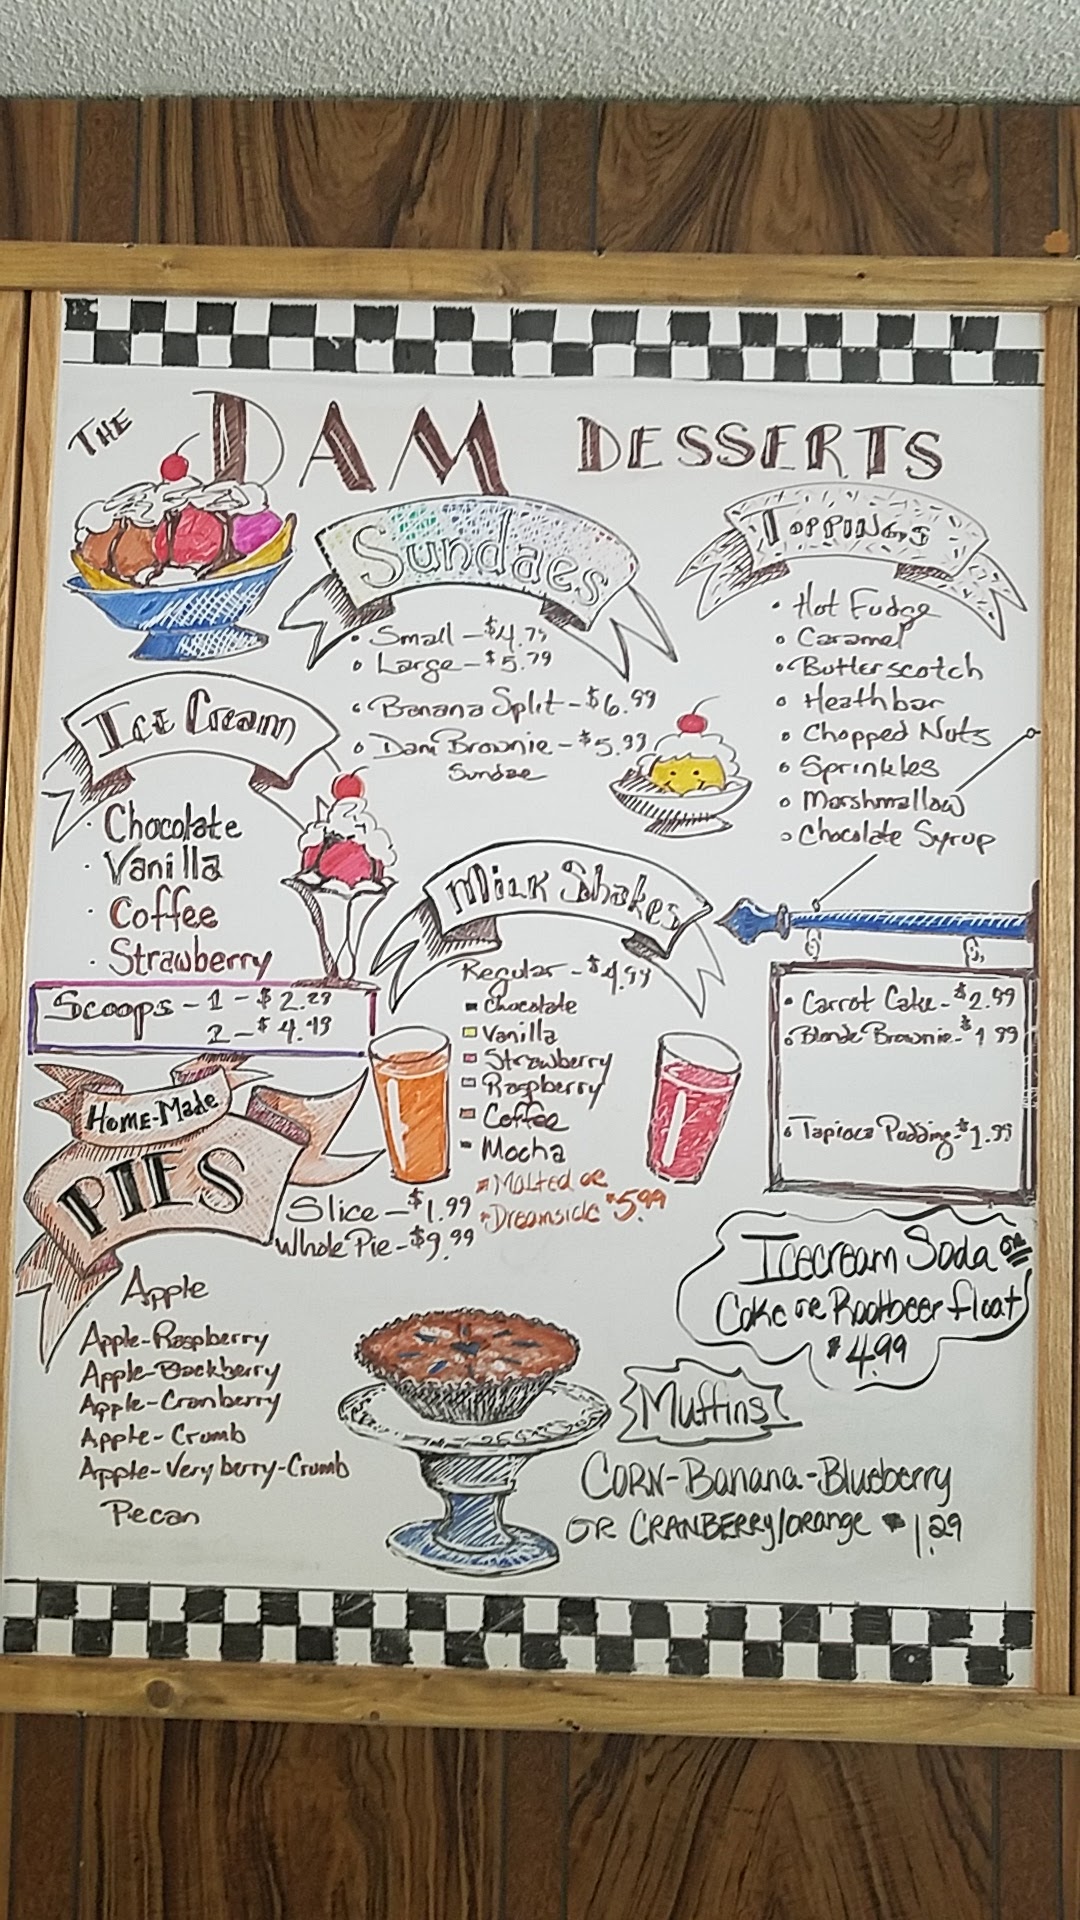 THE DAM DESSERTS
Sundaes
• Small - $4.79
• Large - $5.79
• Banana Split - $6.99
• Dam Brownie - $5.99
Sundae
TOPPINGS
• Hot Fudge
• Caramel
• Butterscotch
• Heathbar
• Chopped Nuts
• Sprinkles
• Marshmallow
• Chocolate Syrup
Ice Cream
• Chocolate
• Vanilla
• Coffee
• Strawberry
Scoops - 1 - $2.29
2 - $4.49
Milk Shakes
Regular - $4.99
Chocolate
Vanilla
Strawberry
Raspberry
Coffee
Mocha
*Malted or
*Dreamsicle $5.99
• Carrot Cake - $2.99
• Blonde Brownie - $1.99
• Tapioca Pudding - $1.99
HOME-MADE
PIES
Slice - $1.99
Whole Pie - $9.99
Apple
Apple-Raspberry
Apple-Blackberry
Apple-Cranberry
Apple-Crumb
Apple-Very berry-Crumb
Pecan
Icecream Soda OR
Coke or Rootbeer float
$4.99
Muffins
CORN-Banana-Blueberry
OR CRANBERRY/orange 1.29